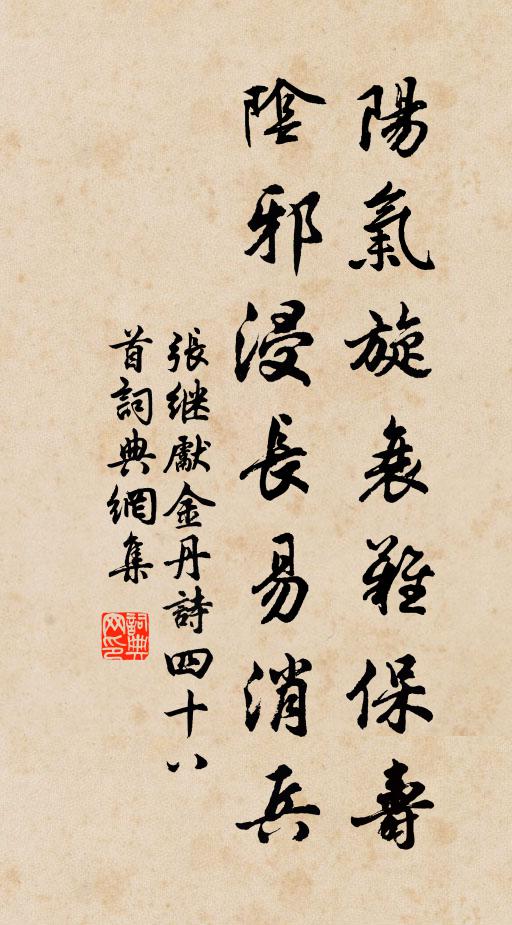 陽氣旋衰難保壽
陰邪浸長易消兵
張继獻金丹詩四十八
首詞典網集
詞典
网印